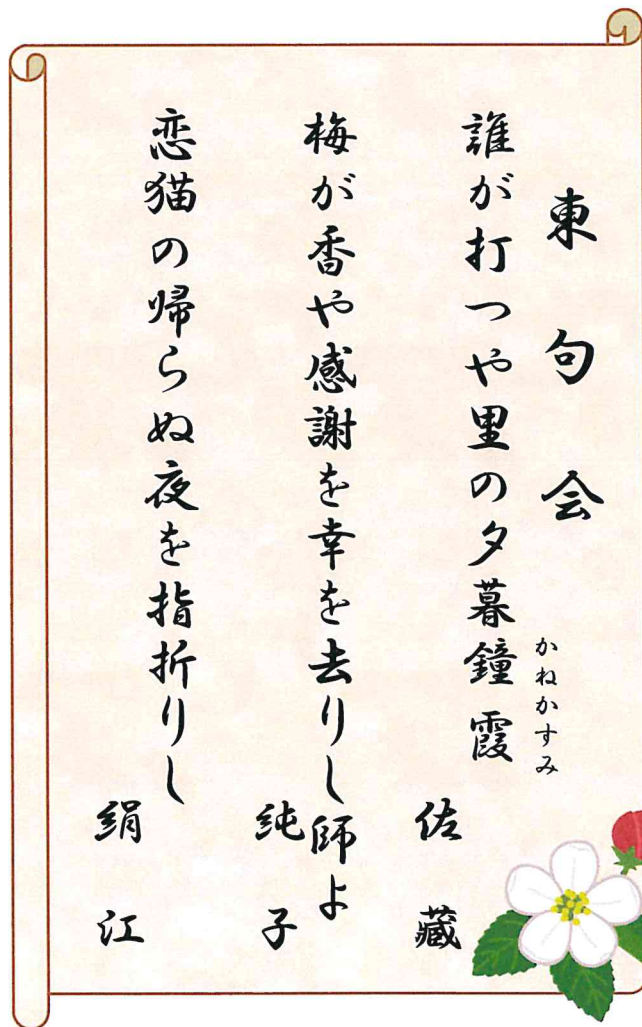 東句会
誰が打つや里の夕暮鐘霞
かねかすみ
佐藏
梅が香や感謝を幸を去りし師よ
純子
恋猫の帰らぬ夜を指折りし
絹江